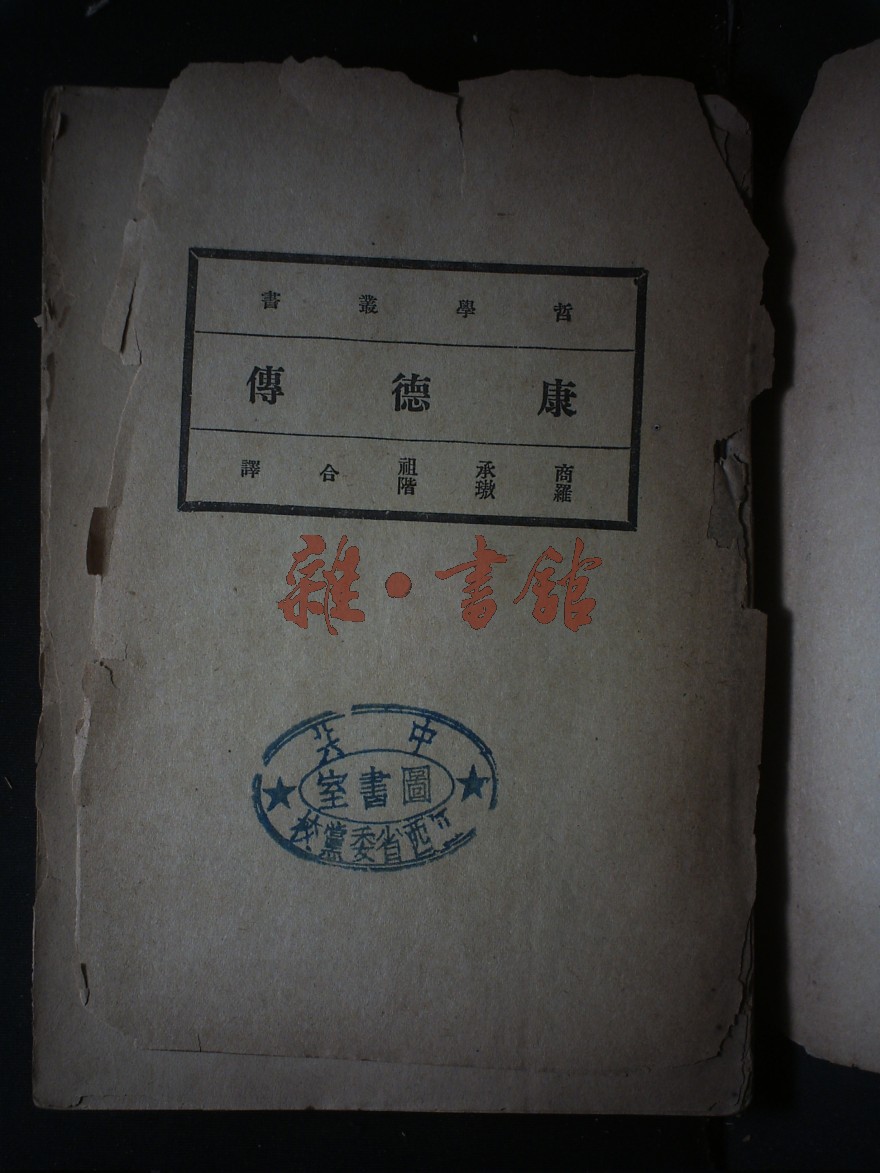 哲學叢書
康德傳
商承祖
羅璈階
合譯
雜·書館
中共
圖書室
西省委黨校